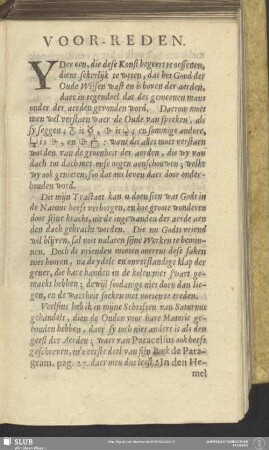 VOOR-REDEN.
YDer een, die dese Konst begeert te oeffenen,
dient sekerlijk te weten, dat het Goud der
Oude Wijsen wast en is boven der aerden,
daer in tegendeel dat des gemeenen mans
onder der aerden gevonden word. Daerom moet
men wel verstaen waer de Oude van spreken, als
sy seggen; is, is; en sommige andere,
is, en; want dit alles moet verstaen
worden van de groenheit der aerden, die wy van
dach tot dach met onse oogen aenschouwen; welke
wy ook genieten, soo dat ons leven daer door onder-
houden word.
Dit mijn Tractaet kan u doen sien wat Godt in
de Natuur heeft verborgen, en hoe groote wonderen
door sijne kracht, uit de ingewanden der aerde aen
den dach gebracht worden. Die nu Godts vriend
wil blijven, sal niet nalaten sijne Werken te bemin-
nen. Doch de vrienden moeten omtrent dese saken
niet hooren, na de ydele en onverstandige klap der
gener, die hare handen in de kolen niet swart ge-
maekt hebben; dewijl soodanige niet doen dan lie-
gen, en de waerheit soeken met voeten te treden.
Voorts heb ik in mijne Schriften van Saturnus
gehandelt, dien de Ouden voor hare Materie ge-
houden hebben, daer sy toch niet anders is als den
geest der Aerden; waer van Paracelsus ook heeft
geschreven, in 't eerste deel van sijn Boek de Para-
gram. pag. 27. daer men dus leest: In den He-
mel
SLUB